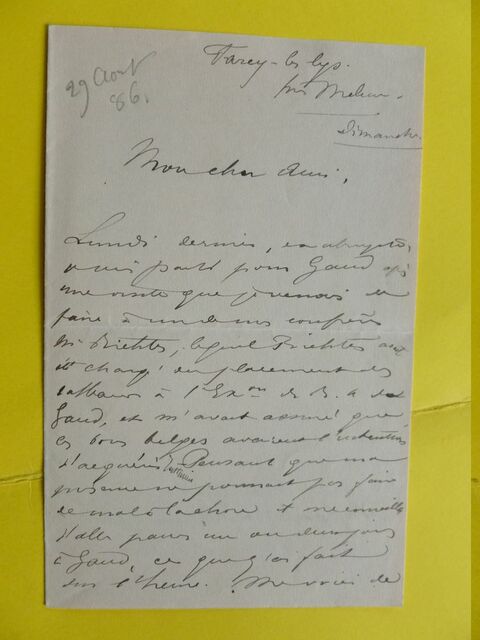 29 Aout
86.
Farcy-les lys.
près Melun.
Dimanche.
Mon cher Ami,
Lundi dernier, ex abrupto,
je suis parti pour Gand après
une visite que je venais de
faire à un de nos confrères
Mr Richter, lequel Richter avait
été chargé du placement des
tableaux à l'Exon de B. A de
Gand, et m'avait assuré que
ces bons belges avaient l'intention
d'acquérir Pensant que ma
présence ne pourrait pas faire
de mal à la chose et me conseilla
d'aller passer un ou deux jours
à Gand, ce que j'ai fait
sur l'heure. Me voici de